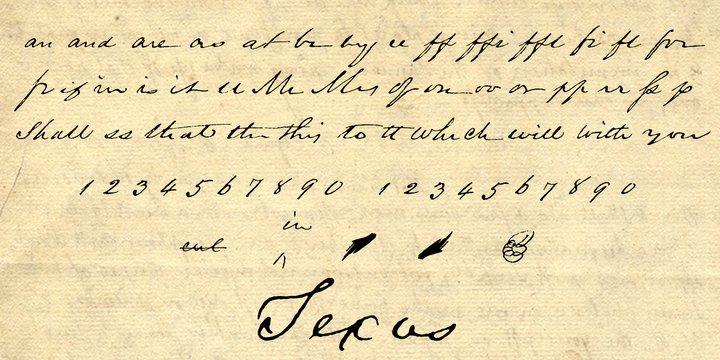 an and are as at be by ee ff ffi ffl fi fl for
fr if in is it ll Mr Mrs of on oo or pp rr ss p
Shall ss that the this to tt which will with you
1 2 3 4 5 6 7 8 9 0 1 2 3 4 5 6 7 8 9 0
in
cut ^
Texas